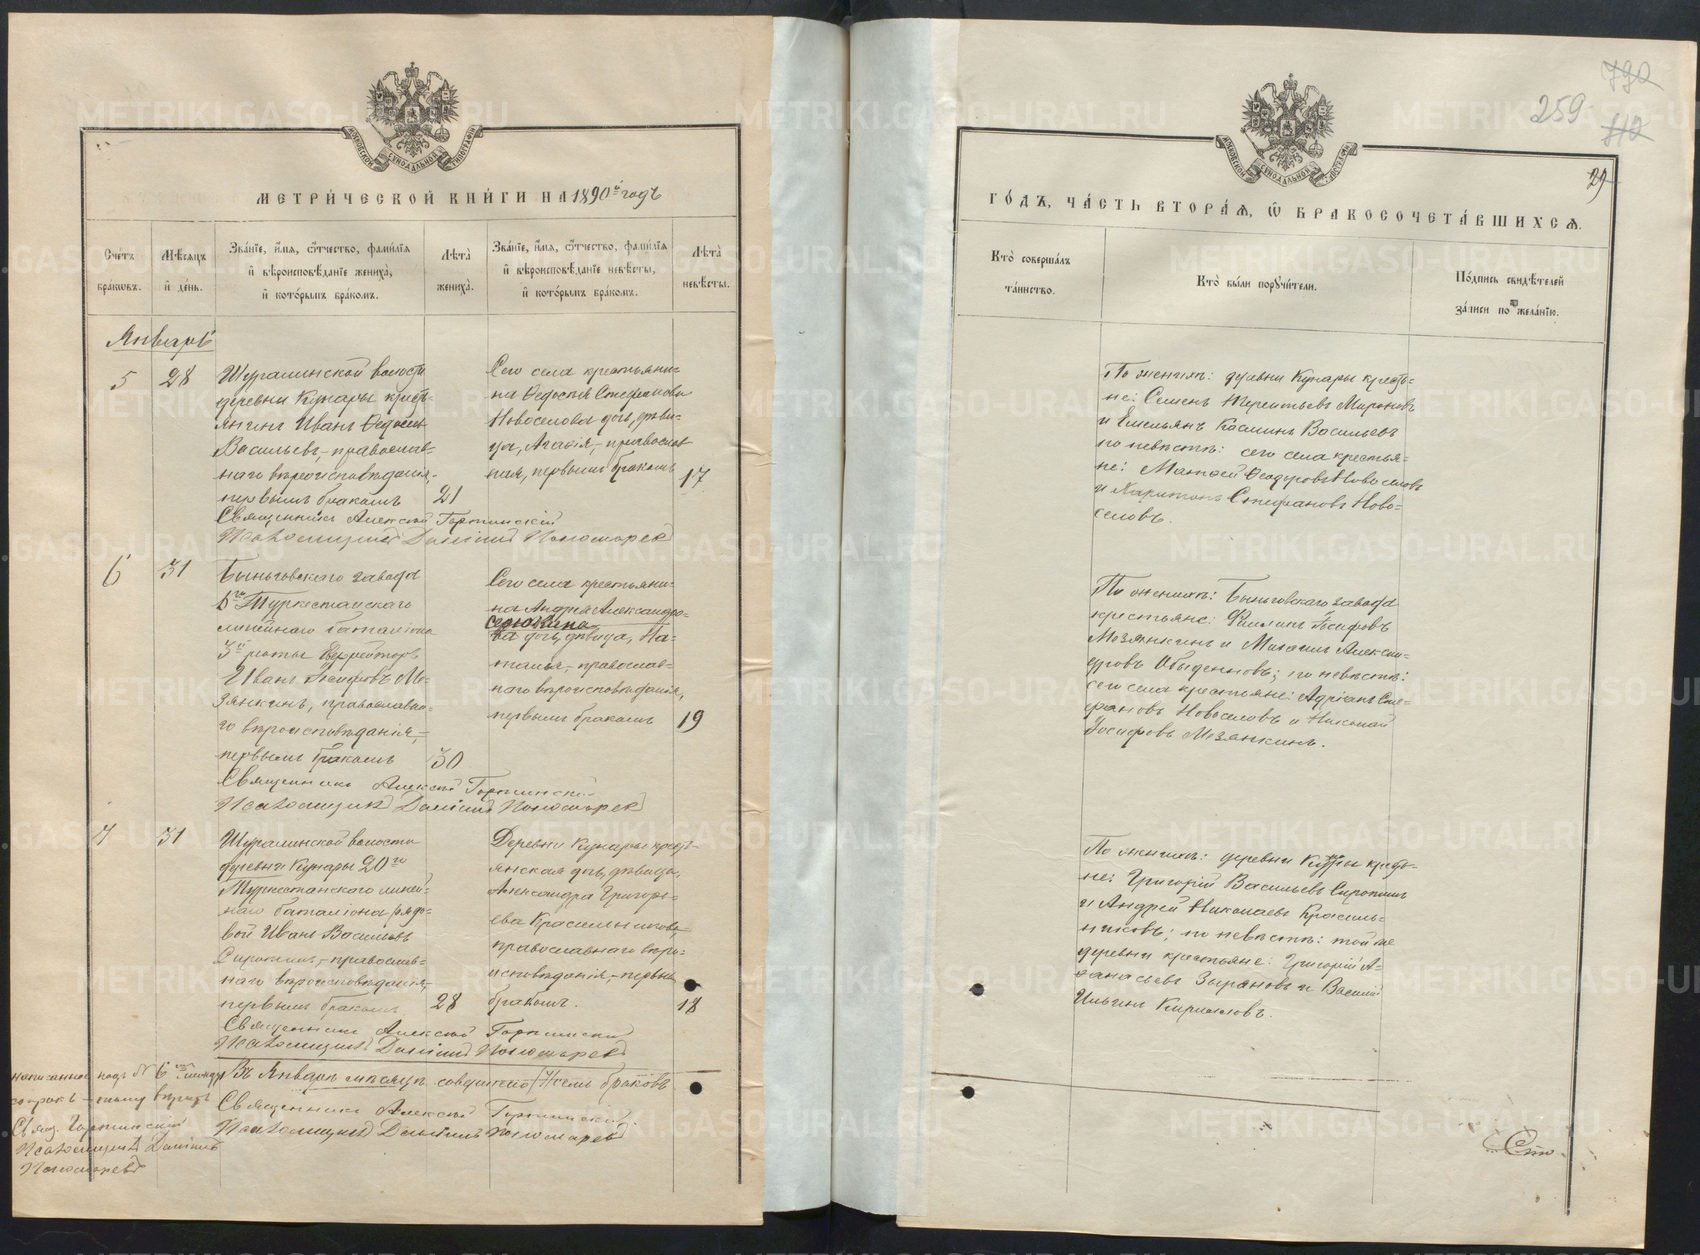 МЕТРИЧЕСКОЙ КНИГИ НА 1890 й годъ
Счетъ браковъ.
Мѣсяцъ и день.
Званіе, имя, отчество, фамилія
и вѣроисповѣданіе жениха,
и которымъ бракомъ.
Лѣта
жениха.
Званіе, имя, отчество, фамилія
и вѣроисповѣданіе невѣсты,
и которымъ бракомъ.
Лѣта
невѣсты.
Январь
5
28
Шуралинской волости
деревни Кунары кресть-
янинъ Иванъ Ѳедосіев
Васильевъ, православ-
наго вѣроисповѣданія,
первымъ бракомъ
21
Сего села крестьяни-
на Ѳедосія Стефанова
Новоселова дочь, дѣви-
ца, Агафія, православ-
ная, первымъ бракомъ
17
Священникъ Алексѣй
Псаломщикъ Даніилъ Пономаревъ
6
31
Быньговскаго завода
5го Туркестанскаго
линейнаго баталіона
3й роты Ефрейторъ
Иванъ Іосифовъ Ме-
зянкинъ, православна-
го вѣроисповѣданія,
первымъ бракомъ
30
Сего села крестьяни-
на Андрея Александро-
ва дочь, дѣвица, На-
талья, православ-
наго вѣроисповѣданія,
первымъ бракомъ
19
Священникъ Алексѣй
Псаломщикъ Даніилъ Пономаревъ
7
31
Шуралинской волости
деревни Кунары 20го
Туркестанскаго линей-
наго баталіона рядо-
вой Иванъ Васильевъ
православ-
наго вѣроисповѣданія,
первымъ бракомъ
28
Деревни Кунары кресть-
янская дочь, дѣвица,
Александра Григорь-
ева Красильникова
православнаго вѣро-
исповѣданія, первымъ
бракомъ.
18
Священникъ Алексѣй
Псаломщикъ Даніилъ Пономаревъ
Въ Январѣ мѣсяцѣ совершено (7) семь браковъ
Священникъ Алексѣй
Псаломщикъ Даніилъ Пономаревъ
написанное подъ № 6
вѣрить
Свящ.
Псаломщикъ Даніилъ
Пономаревъ
790
259
112
29
ГОДЪ, ЧАСТЬ ВТОРАЯ, Ѡ БРАКОСОЧЕТАВШИХСЯ.
Кто совершалъ
таинство.
Кто были поручители.
Подпись свидѣтелей
записи по желанію.
По женихѣ: деревни Кунары кресть-
не: Семенъ Терентьевъ Мироновъ
и Емельянъ Васильевъ
по невѣстѣ: сего села крестья-
не: Матѳей Ѳеодоровъ Новоселовъ
и Харитонъ Стефановъ Ново-
селовъ.
По женихѣ: Быньговскаго завода
крестьяне: Филиппъ Іосифовъ
Мезянкинъ и Михаилъ Алексан-
дровъ Обыденновъ; по невѣстѣ:
сего села крестьяне: Адріанъ Сте-
фановъ Новоселовъ и Николай
Іосифовъ Мезянкинъ.
По женихѣ: деревни Кунары кресть-
не: Григорій Васильевъ
и Андрей Николаевъ Красиль-
никовъ; по невѣстѣ: той же
деревни крестьяне: Григорій А-
ѳанасьевъ Зыряновъ и Василій
Ильинъ Кирилловъ.
METRIKI.GASO-URAL.RU